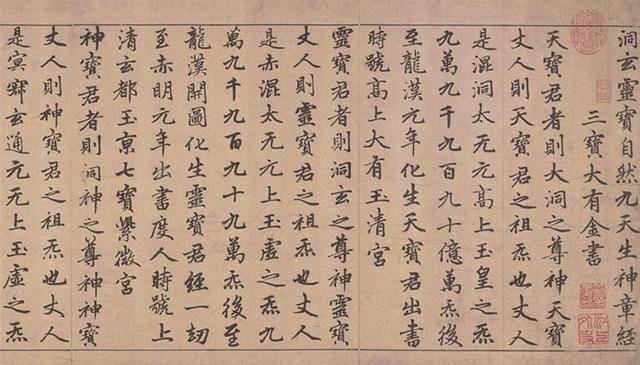 洞玄靈寶自然九天生神章經
三寶大有金書
天寶君者則大洞之尊神天寶
丈人則天寶君之祖炁也丈人
是混洞太无元高上玉皇之炁
九萬九千九百九十億萬炁後
至龍漢元年化生天寶君出書
時號高上大有玉清宮
靈寶君者則洞玄之尊神靈寶
丈人則靈寶君之祖炁也丈人
是赤混太无元上玉虛之炁九
萬九千九百九十九萬炁後至
龍漢開圖化生靈寶君經一劫
至赤明元年出書度人時號上
清玄都玉京七寶紫微宮
神寶君者則洞神之尊神神寶
丈人則神寶君之祖炁也丈人
是冥寂玄通元无上玉虛之炁